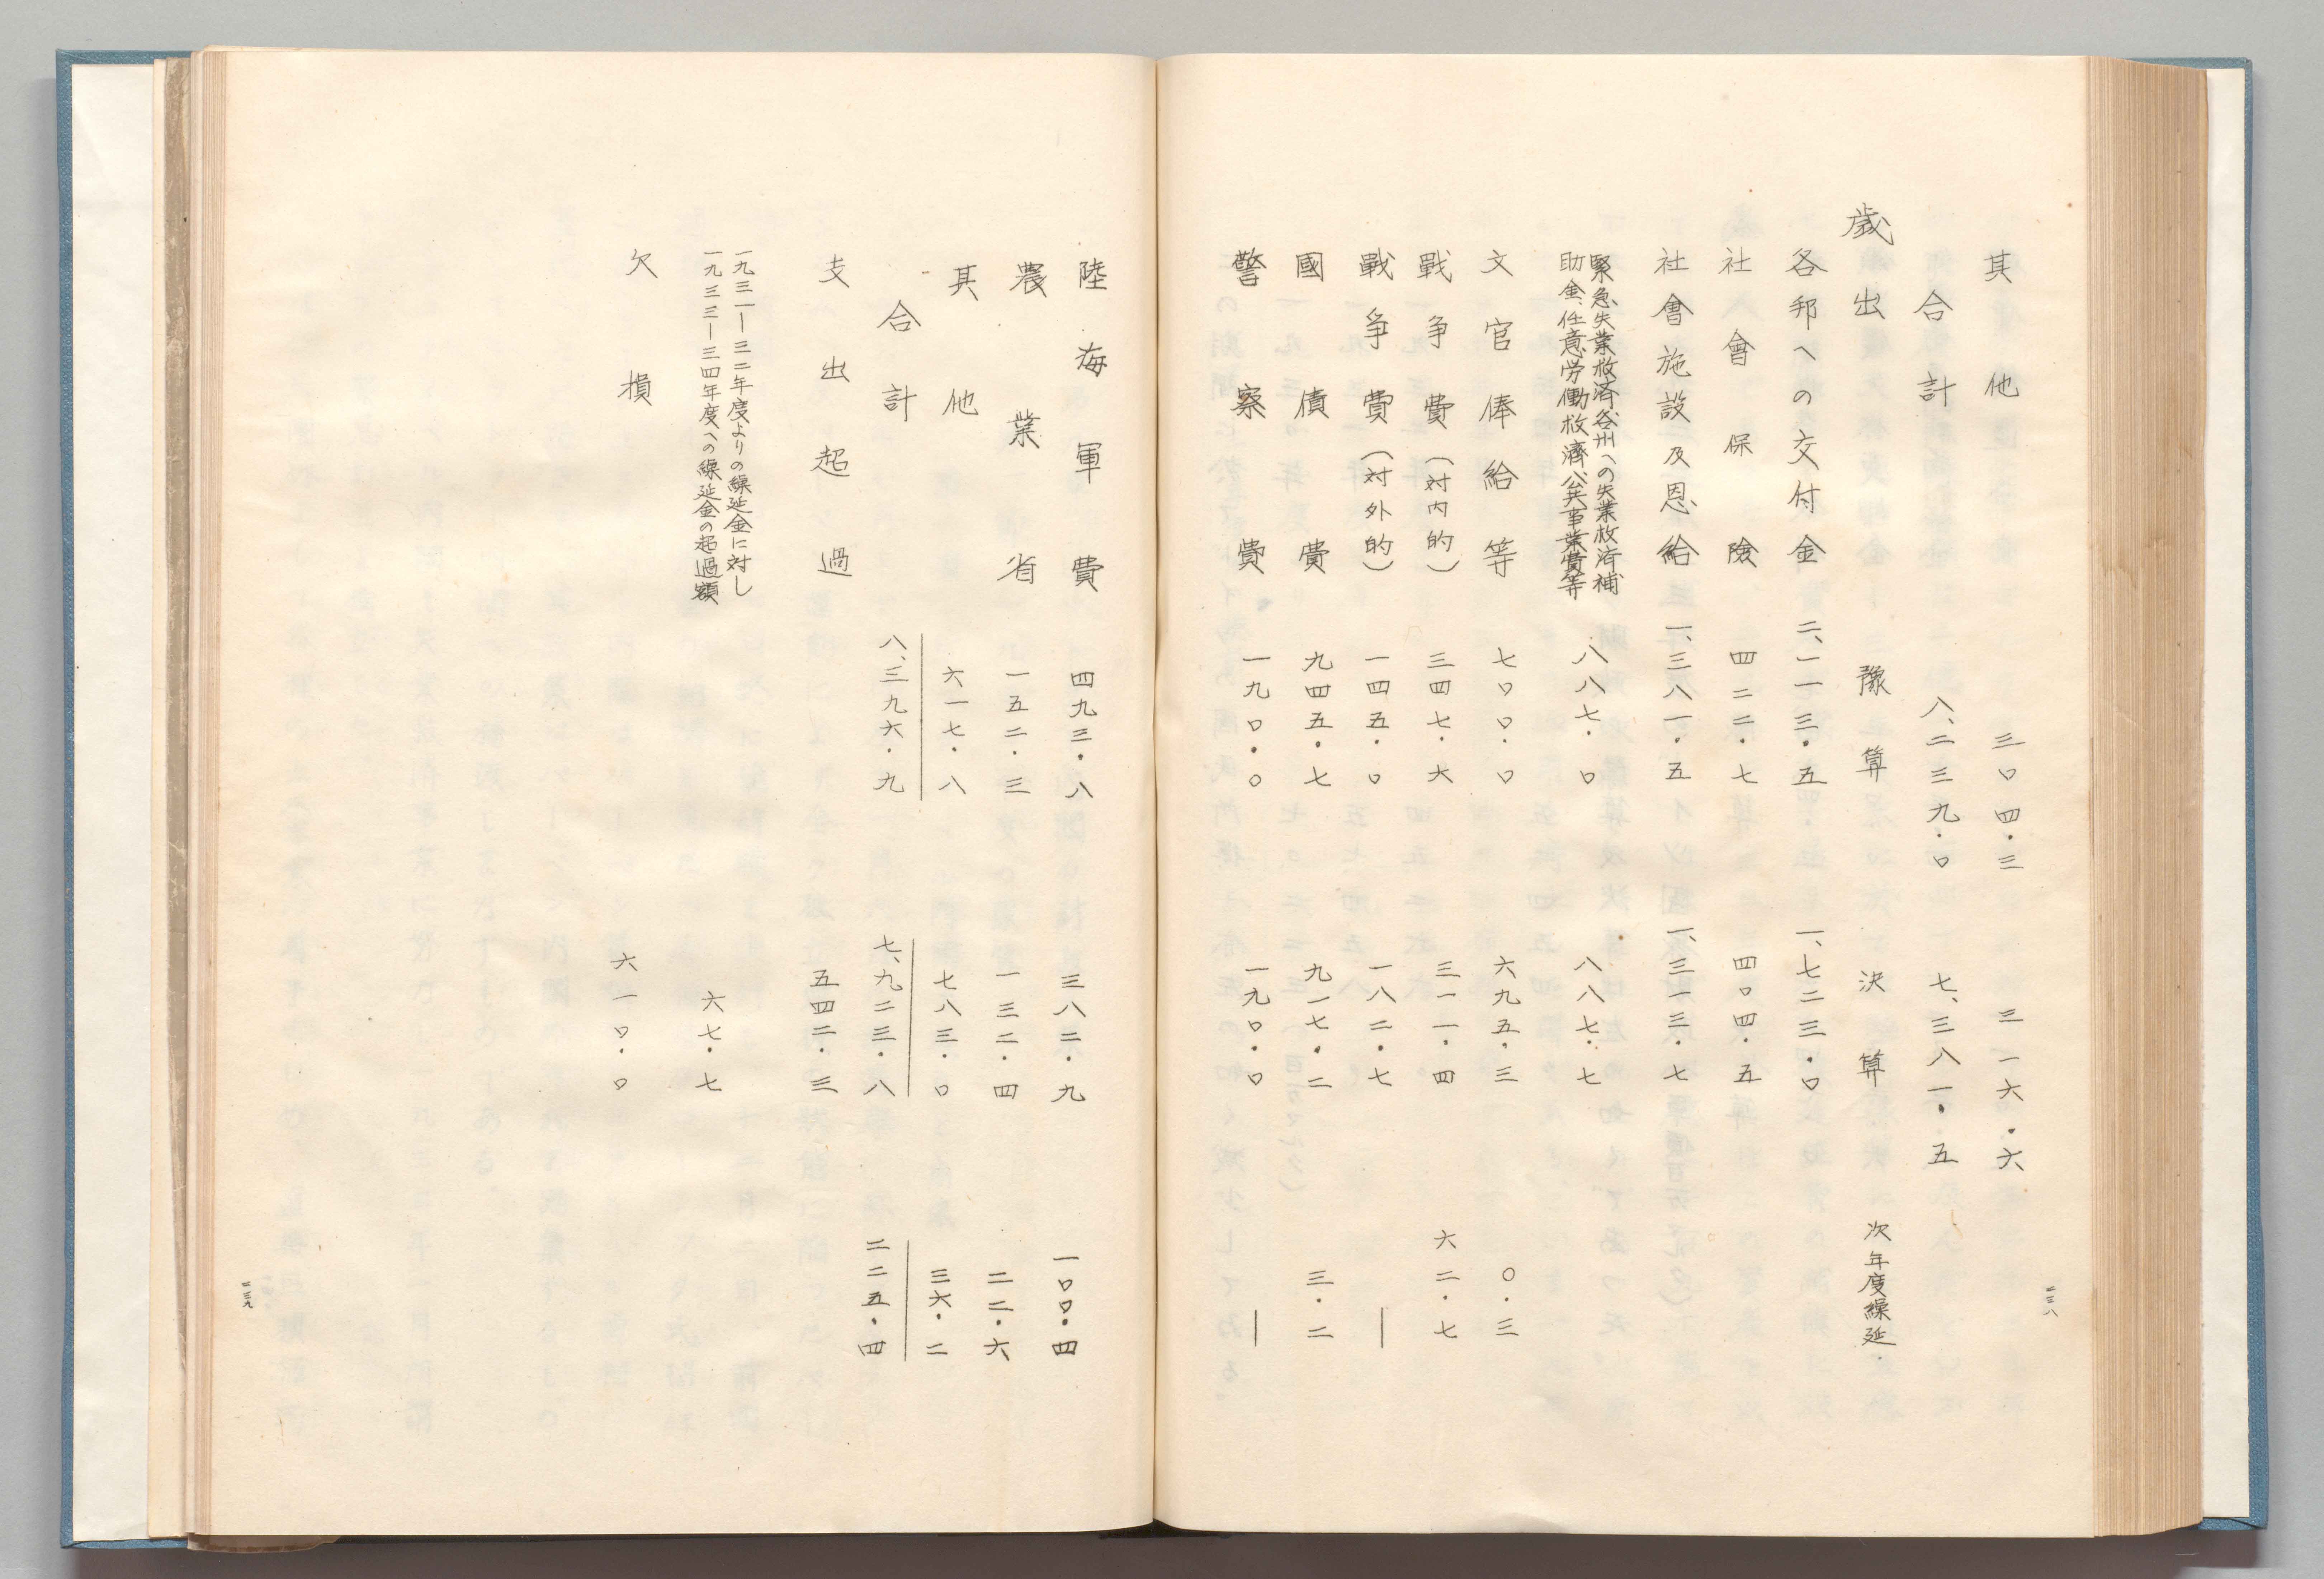 其他 三〇四・三 三一六・六
合計 八、二三九・〇 七、三八一・五
歳出 豫算 決算 次年度繰延
各邦への交付金 二、一一三・五 一、七二三・〇
社會保險 四二二・七 四〇四・五
社會施設及恩給 一、三八一・五 一、三一三・七
緊急失業救済各州への失業救済補
助金、任意労働救濟公共事業費等 八八七・〇 八八七・七
文官俸給等 七〇〇・〇 六九五・三 〇・三
戰争費(対内的) 三四七・六 三一一・四 六二・七
戰争費(対外的) 一四五・〇 一八二・七 ―
國債費 九四五・七 九一七・二 三・二
警察費 一九〇・〇 一九〇・〇 ―
二三八
陸海軍費 四九三・八 三八二・九 一〇〇・四
農業省 一五二・三 一三二・四 二二・六
其他 六一七・八 七八三・〇 三六・二
合計 八、三九六・九 七、九二三・八 二二五・四
支出超過 五四二・三
一九三一―三二年度よりの繰延金に対し
一九三三―三四年度への繰延金の超過額 六七・七
欠損 六一〇・〇
二三九